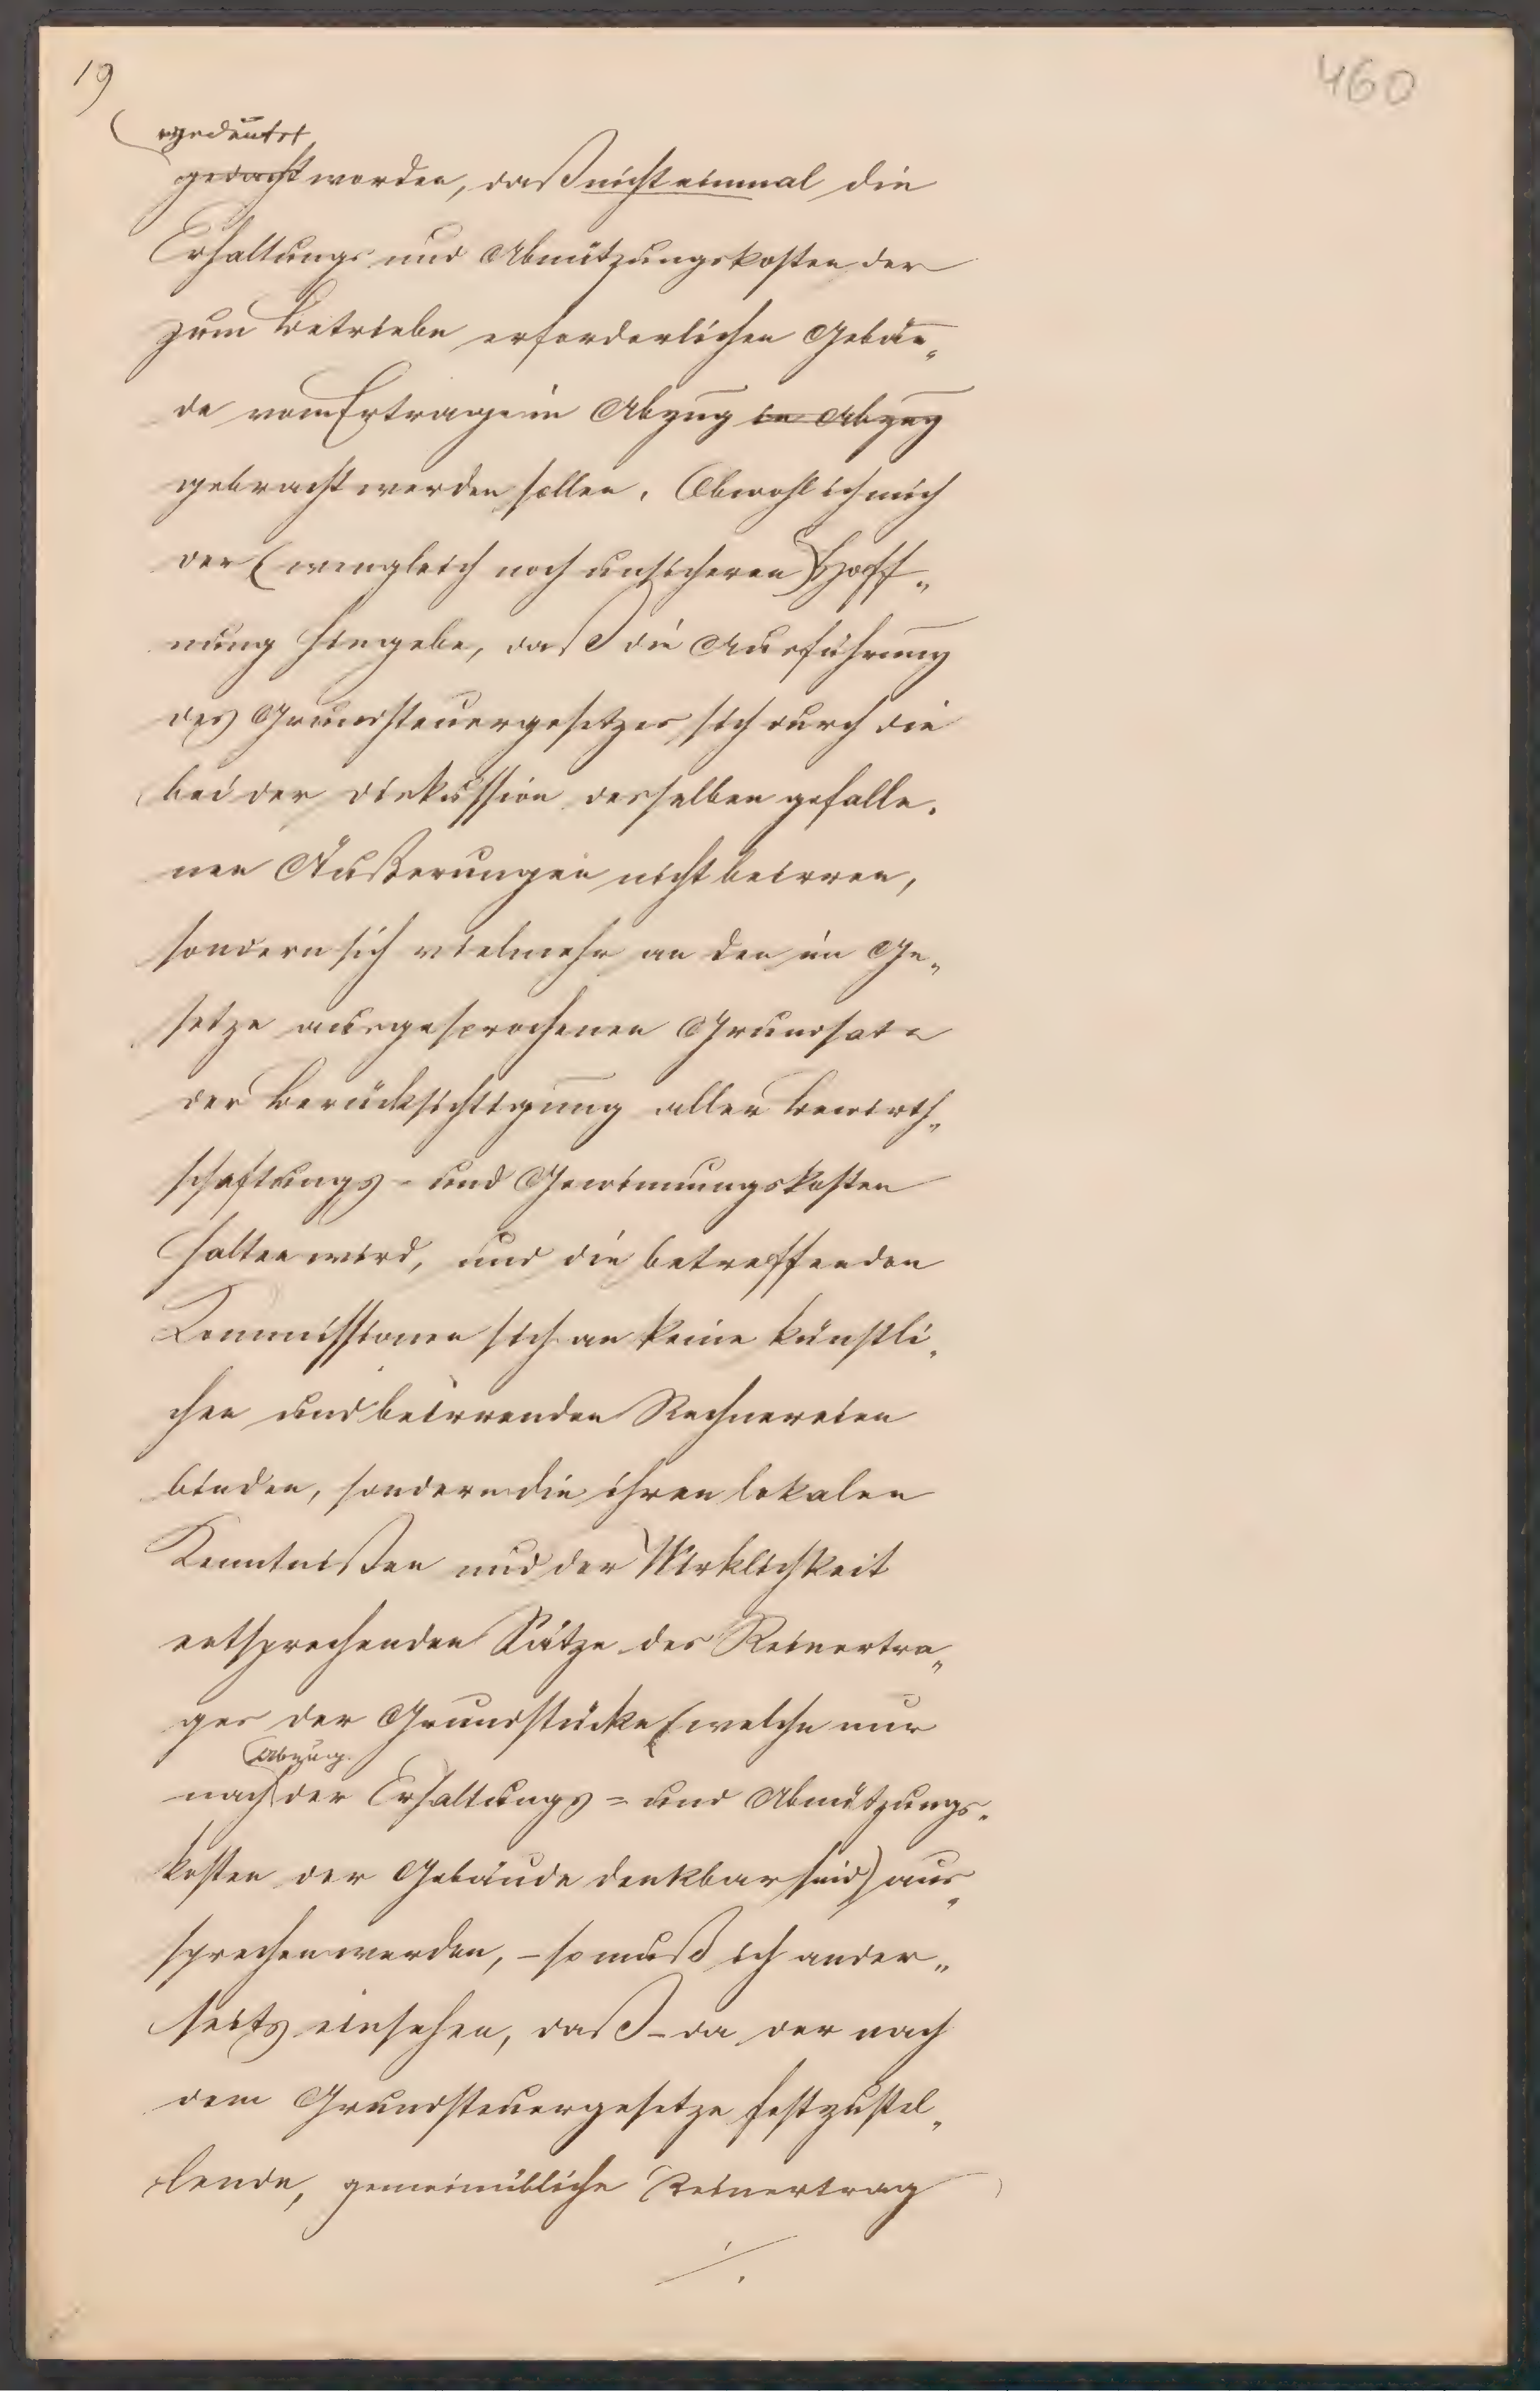 19
460
gedeutet
gedacht worden, daß nicht einmal die
Erhaltungs und Abnützungskosten der
zum Betriebe erforderlichen Gebäu„
de vom Ertrage in Abzug in Abzug
gebracht werden sollen. Obwohl ich mich
der (wengleich noch unsicheren) Hoff„
nung hingebe, daß die Ausführung
des Grundsteuergesetzes sich durch die
bei der Diskussion desselben gefalle„
nen Äußerungen nicht beirren,
sondern sich vielmehr an den im Ge„
setze ausgesprochenen Grundsatz
der Berücksichtigung aller Bewirth„
schaftungs- und Gewinnungskosten
halten wird, und die betreffenden
Kommissionen sich an keine künstli„
chen und beirrenden Rechnereien
binden, sondern die ihren lokalen
Kenntnißen und der Wirklichkeit
entsprechenden Sätze des Reinertra„
ges der Grundstücke (welche nur
Abzug
nach der Erhaltungs= und Abnützungs„
kosten der Gebäude denkbar sind) aus„
sprechen werden, – so muß ich ander„
seits einsehen, daß – da der nach
dem Grundsteuergesetze festzustel„
lende, gemeinübliche Reinertrag
./.